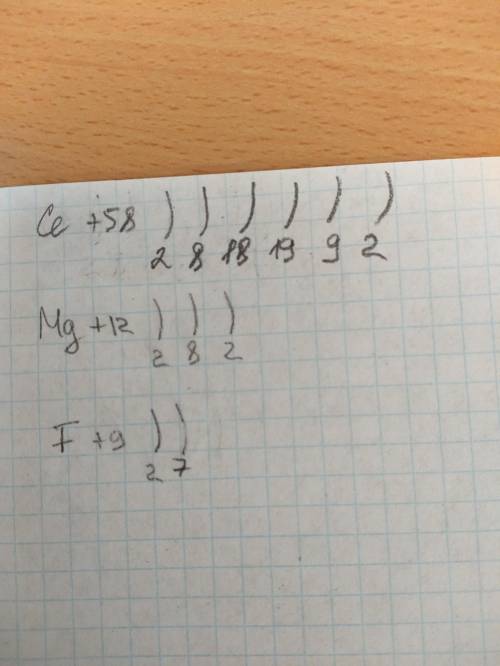 Ce +58 ) ) ) ) ) )
2 8 18 19 9 2
Mg +12 ) ) )
2 8 2
F +9 ) )
2 7